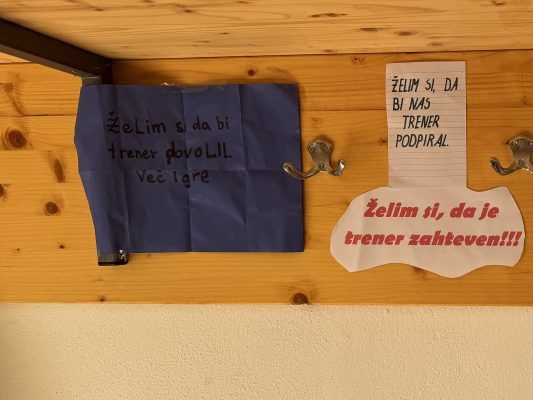 Želim si da bi
trener dovoLIL
Več igre
ŽELIM SI, DA
BI NAS
TRENER
PODPIRAL.
Želim si, da je
trener zahteven!!!